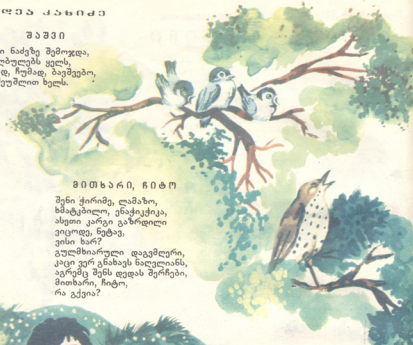 კახიძე
შაშვი
ნაძვზე შემოჯდა,
ყელს,
ჩუმად, ბავშვებო,
ხელს.
მითხარი, ჩიტო
შენი ჭირიმე, ლამაზო,
ხმატკბილო, ენაჭიკჭიკა,
ასეთი კარგი გაზრდილი
ვიცოდე, ნეტავ,
ვისი ხარ?
გულმხიარული დაგვმღერი,
კაცი ვერ გნახავს ნაღვლიანს,
აგრემც შენს დედას შერჩები,
მითხარი, ჩიტო,
რა გქვია?